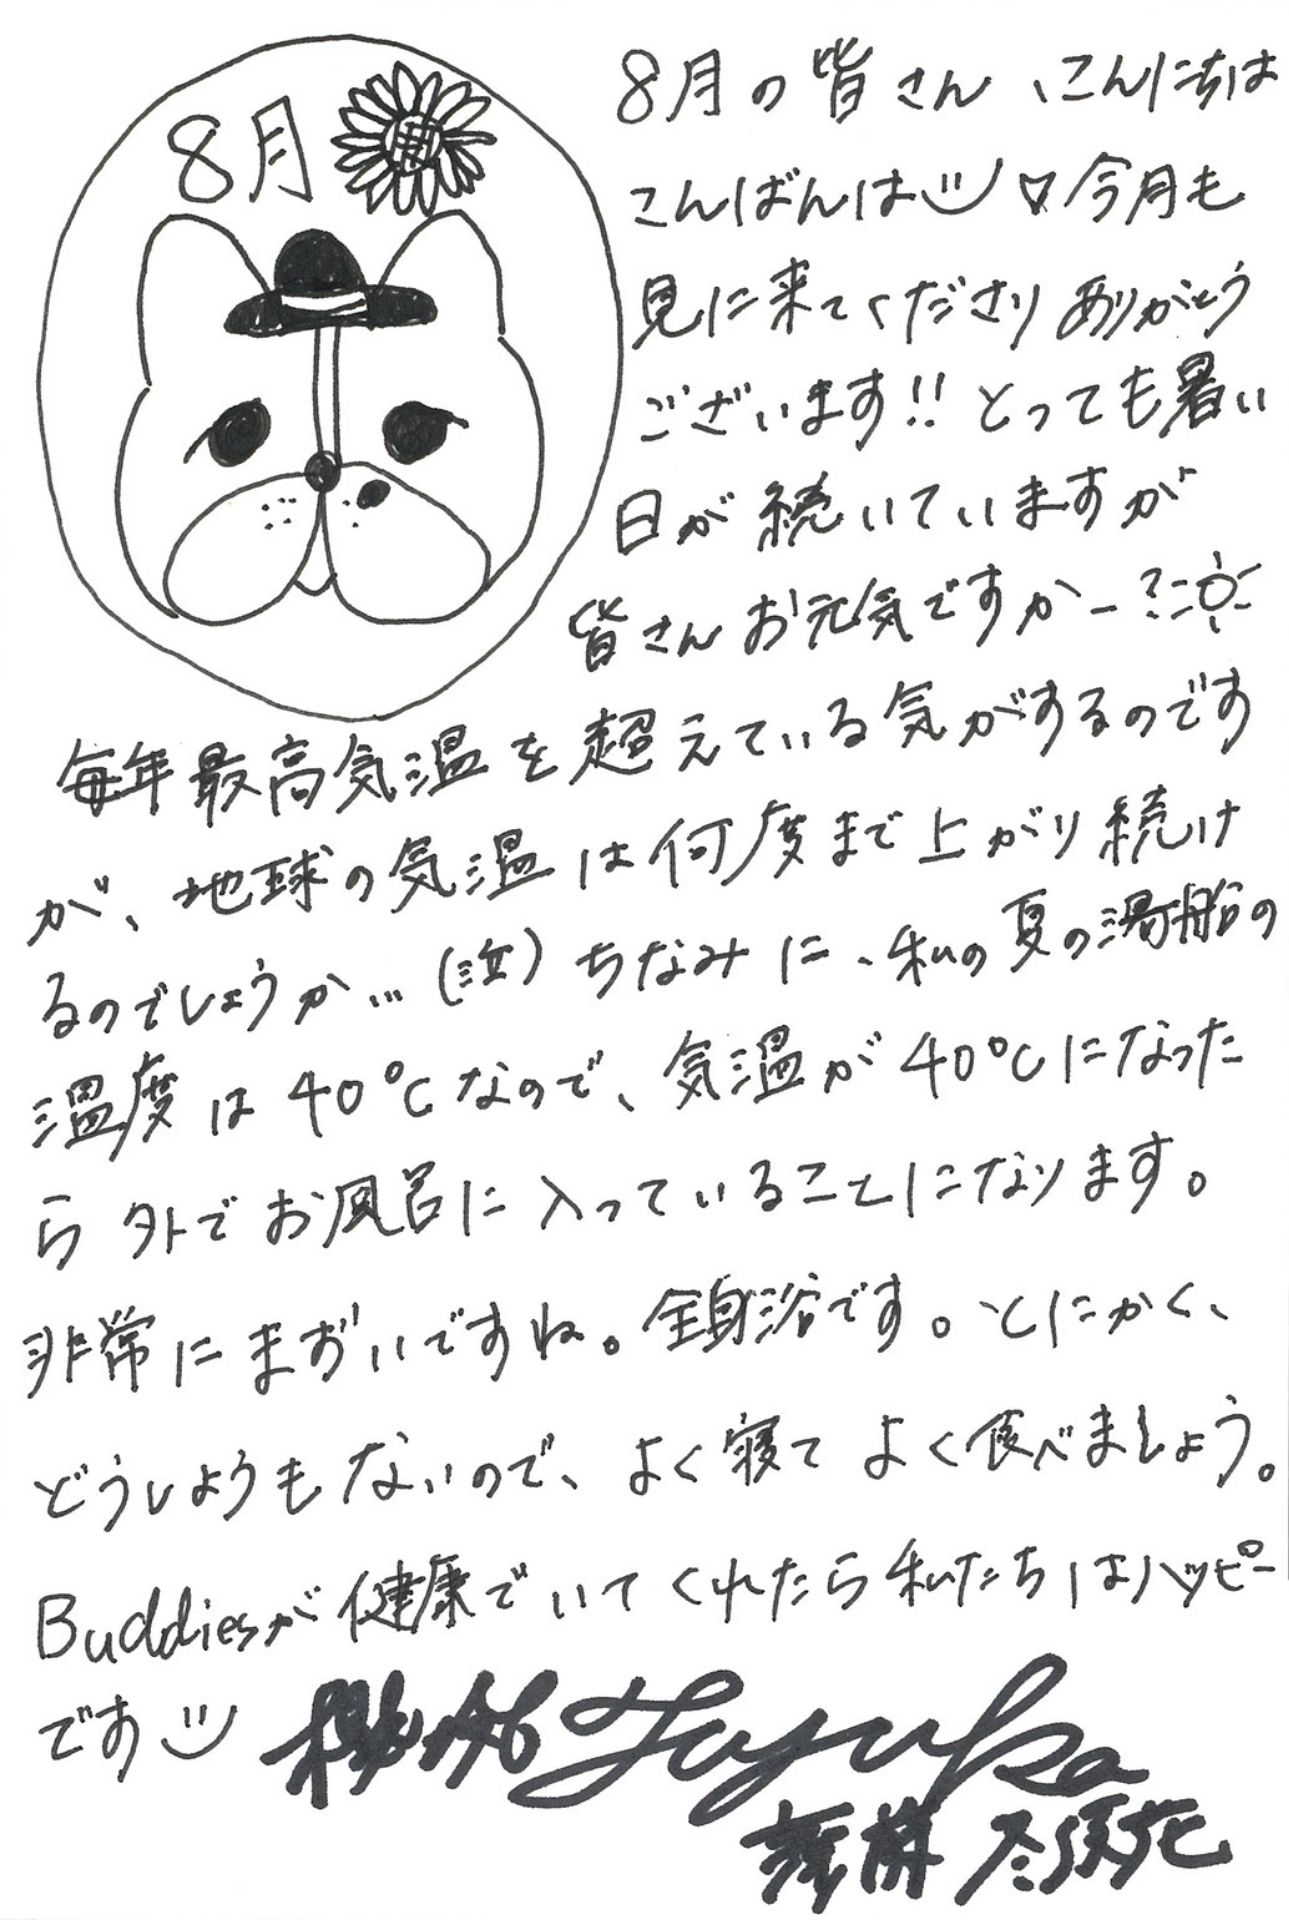 8月
8月の皆さん、こんにちは
こんばんは 今月も
見に来てくださりありがとう
ございます!!とっても暑い
日が続いていますが
皆さんお元気ですかー?
毎年最高気温を超えている気がするのです
が、地球の気温は何度まで上がり続け
るのでしょうか…(泣)ちなみに、私の夏の湯船の
温度は40℃なので、気温が40℃になった
ら外でお風呂に入っていることになります。
非常にまずいですね。全身浴です。とにかく、
どうしようもないので、よく寝てよく食べましょう。
Buddiesが健康でいてくれたら私たちはハッピー
です
Fuyuka
齋藤冬優花